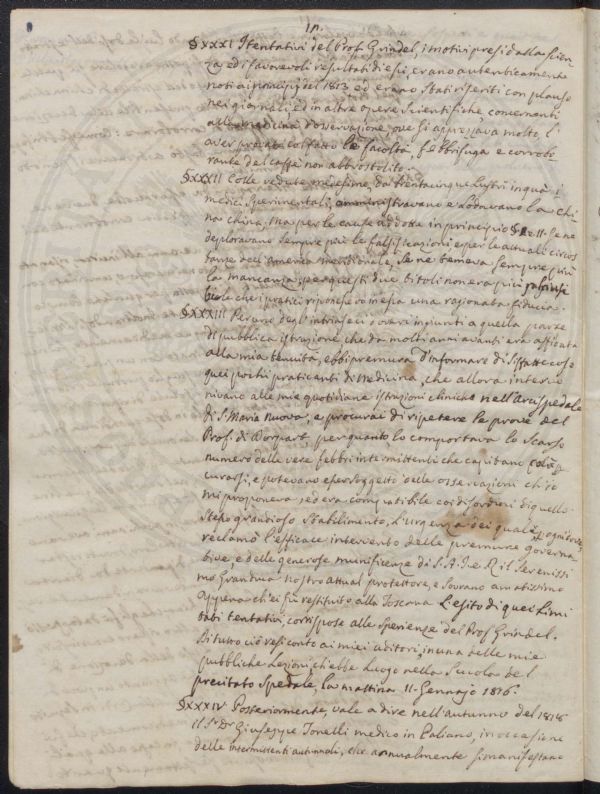 §XXXI I tentativi del Prof. Grindel, i motivi presi dalla scien
za, ed i favorevoli resultati di essi, erano autenticamente
noti ai principj del 1813 ed erano stati riferiti con plauso
nei giornali, ed in altre opere scientifiche, concernenti
alla medicina d'osservazione, ove si apprezzava molto l'
aver provate col fatto le facoltà, febbrifuga e corrobo
rante del caffè non abbrostolito.
§XXXII Colle vedute medesime, da trentacinque lustri in quà i
medici sperimentali, amministravano e lodavano la chi
na china, ma per le cause addotte in principio § se ne
deploravano sempre più le falsificazioni e per le attuali circos
tanze dell'America meridionale, se ne temeva sempre più
la mancanza; per questi due titoli non era più
bile che i pratici riponessero in essa una ragionata fiducia.
§XXXIII Per uno degl'intrinseci doveri ingiunti a quella parte
di pubblica istruzione, che da molti anni avanti era affidata
alla mia tenuità, ebbi premura d'informare di siffatte cose
quei pochi praticanti di medicina, che allora interve
nivano alle mie quotidiane istruzioni cliniche nell'Arcispedale
di S. Maria Nuova, e procurai di ripetere le prove del
Prof. di Dorpart, per quanto lo comportava lo scarso
numero delle vere febbri intermittenti che capitano
curarsi, e potevano esser soggetto delle osservazioni ch'io
mi proponeva, ed era compatibile coi disordini di quello
stesso grandioso stabilimento, l'urgenza dei quali
reclamò l'efficace intervento delle premure governa
tive, e delle generose munificenze di S. A. I. e R. il Serenissi
mo Granduca nostro attual protettore, e Sovrano amatissimo
appena ch'ei fù restituito alla Toscana. L'esito di quei limi
tati tentativi, corrispose alle sperienze del Prof. Grindel.
Di tutto ciò resi conto ai miei uditori, in una delle mie
pubbliche lezioni, ch'ebbe luogo nella Scuola del
precitato Spedale, la mattina 11. Gennajo 1816.
§XXXIV Posteriormente, vale a dire nell'autunno del 1816
il Sr. Dr. Giuseppe Tonelli medico in Paliano, in occasione
delle intermittenti autunnali, che annualmente si manifestano